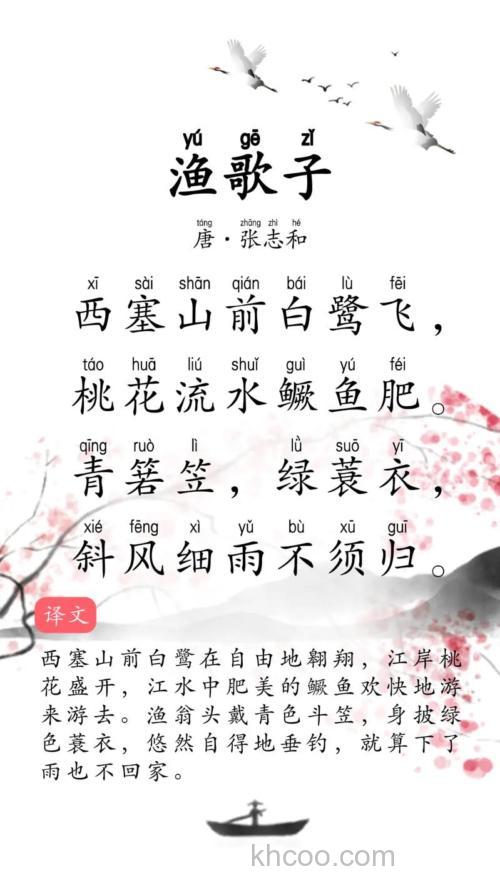 yú gē zǐ
渔歌子
táng zhāng zhì hé
唐·张志和
xī sài shān qián bái lù fēi
西塞山前白鹭飞，
táo huā liú shuǐ guì yú féi
桃花流水鳜鱼肥。
qīng ruò lì lǜ suō yī
青箬笠，绿蓑衣，
xié fēng xì yǔ bù xū guī
斜风细雨不须归。
译文
西塞山前白鹭在自由地翱翔，江岸桃
花盛开，江水中肥美的鳜鱼欢快地游
来游去。渔翁头戴青色斗笠，身披绿
色蓑衣，悠然自得地垂钓，就算下了
雨也不回家。
khcoo.com